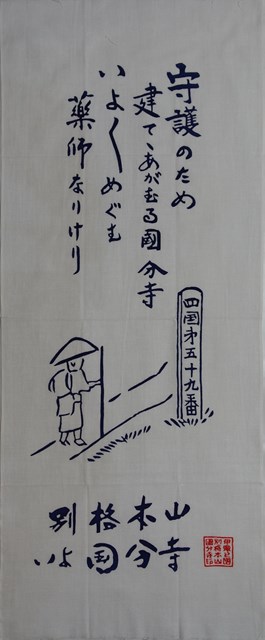 守護のため
建てゝあがむる國分寺
いよ〱めぐむ
薬師なりけり
四国才五十九番
別格本山
いよ国分寺